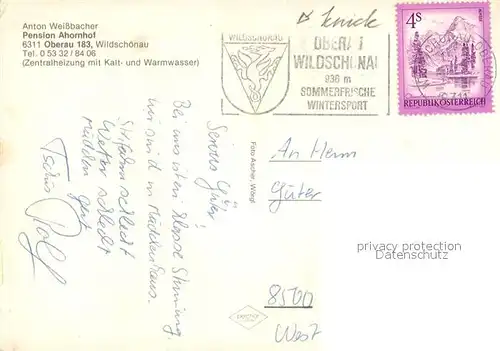 Anton Weißbacher
Pension Ahornhof
6311 Oberau 183, Wildschönau
Tel. 0 53 32 / 84 06
(Zentralheizung mit Kalt- und Warmwasser)
WILDSCHÖNAU
OBERAU
WILDSCHÖNAU
936 m
SOMMERFRISCHE
WINTERSPORT
4S
REPUBLIK ÖSTERREICH
Servus Güter!
Bei uns ist ein klasse Stimmung.
wir sind im Mädchenhaus.
schlecht
Wetter schlecht
Mädchen gut
Tschüs Rolf
Foto Ascher, Wörgl
An Herrn
Güter
8500
West
privacy protection
Datenschutz